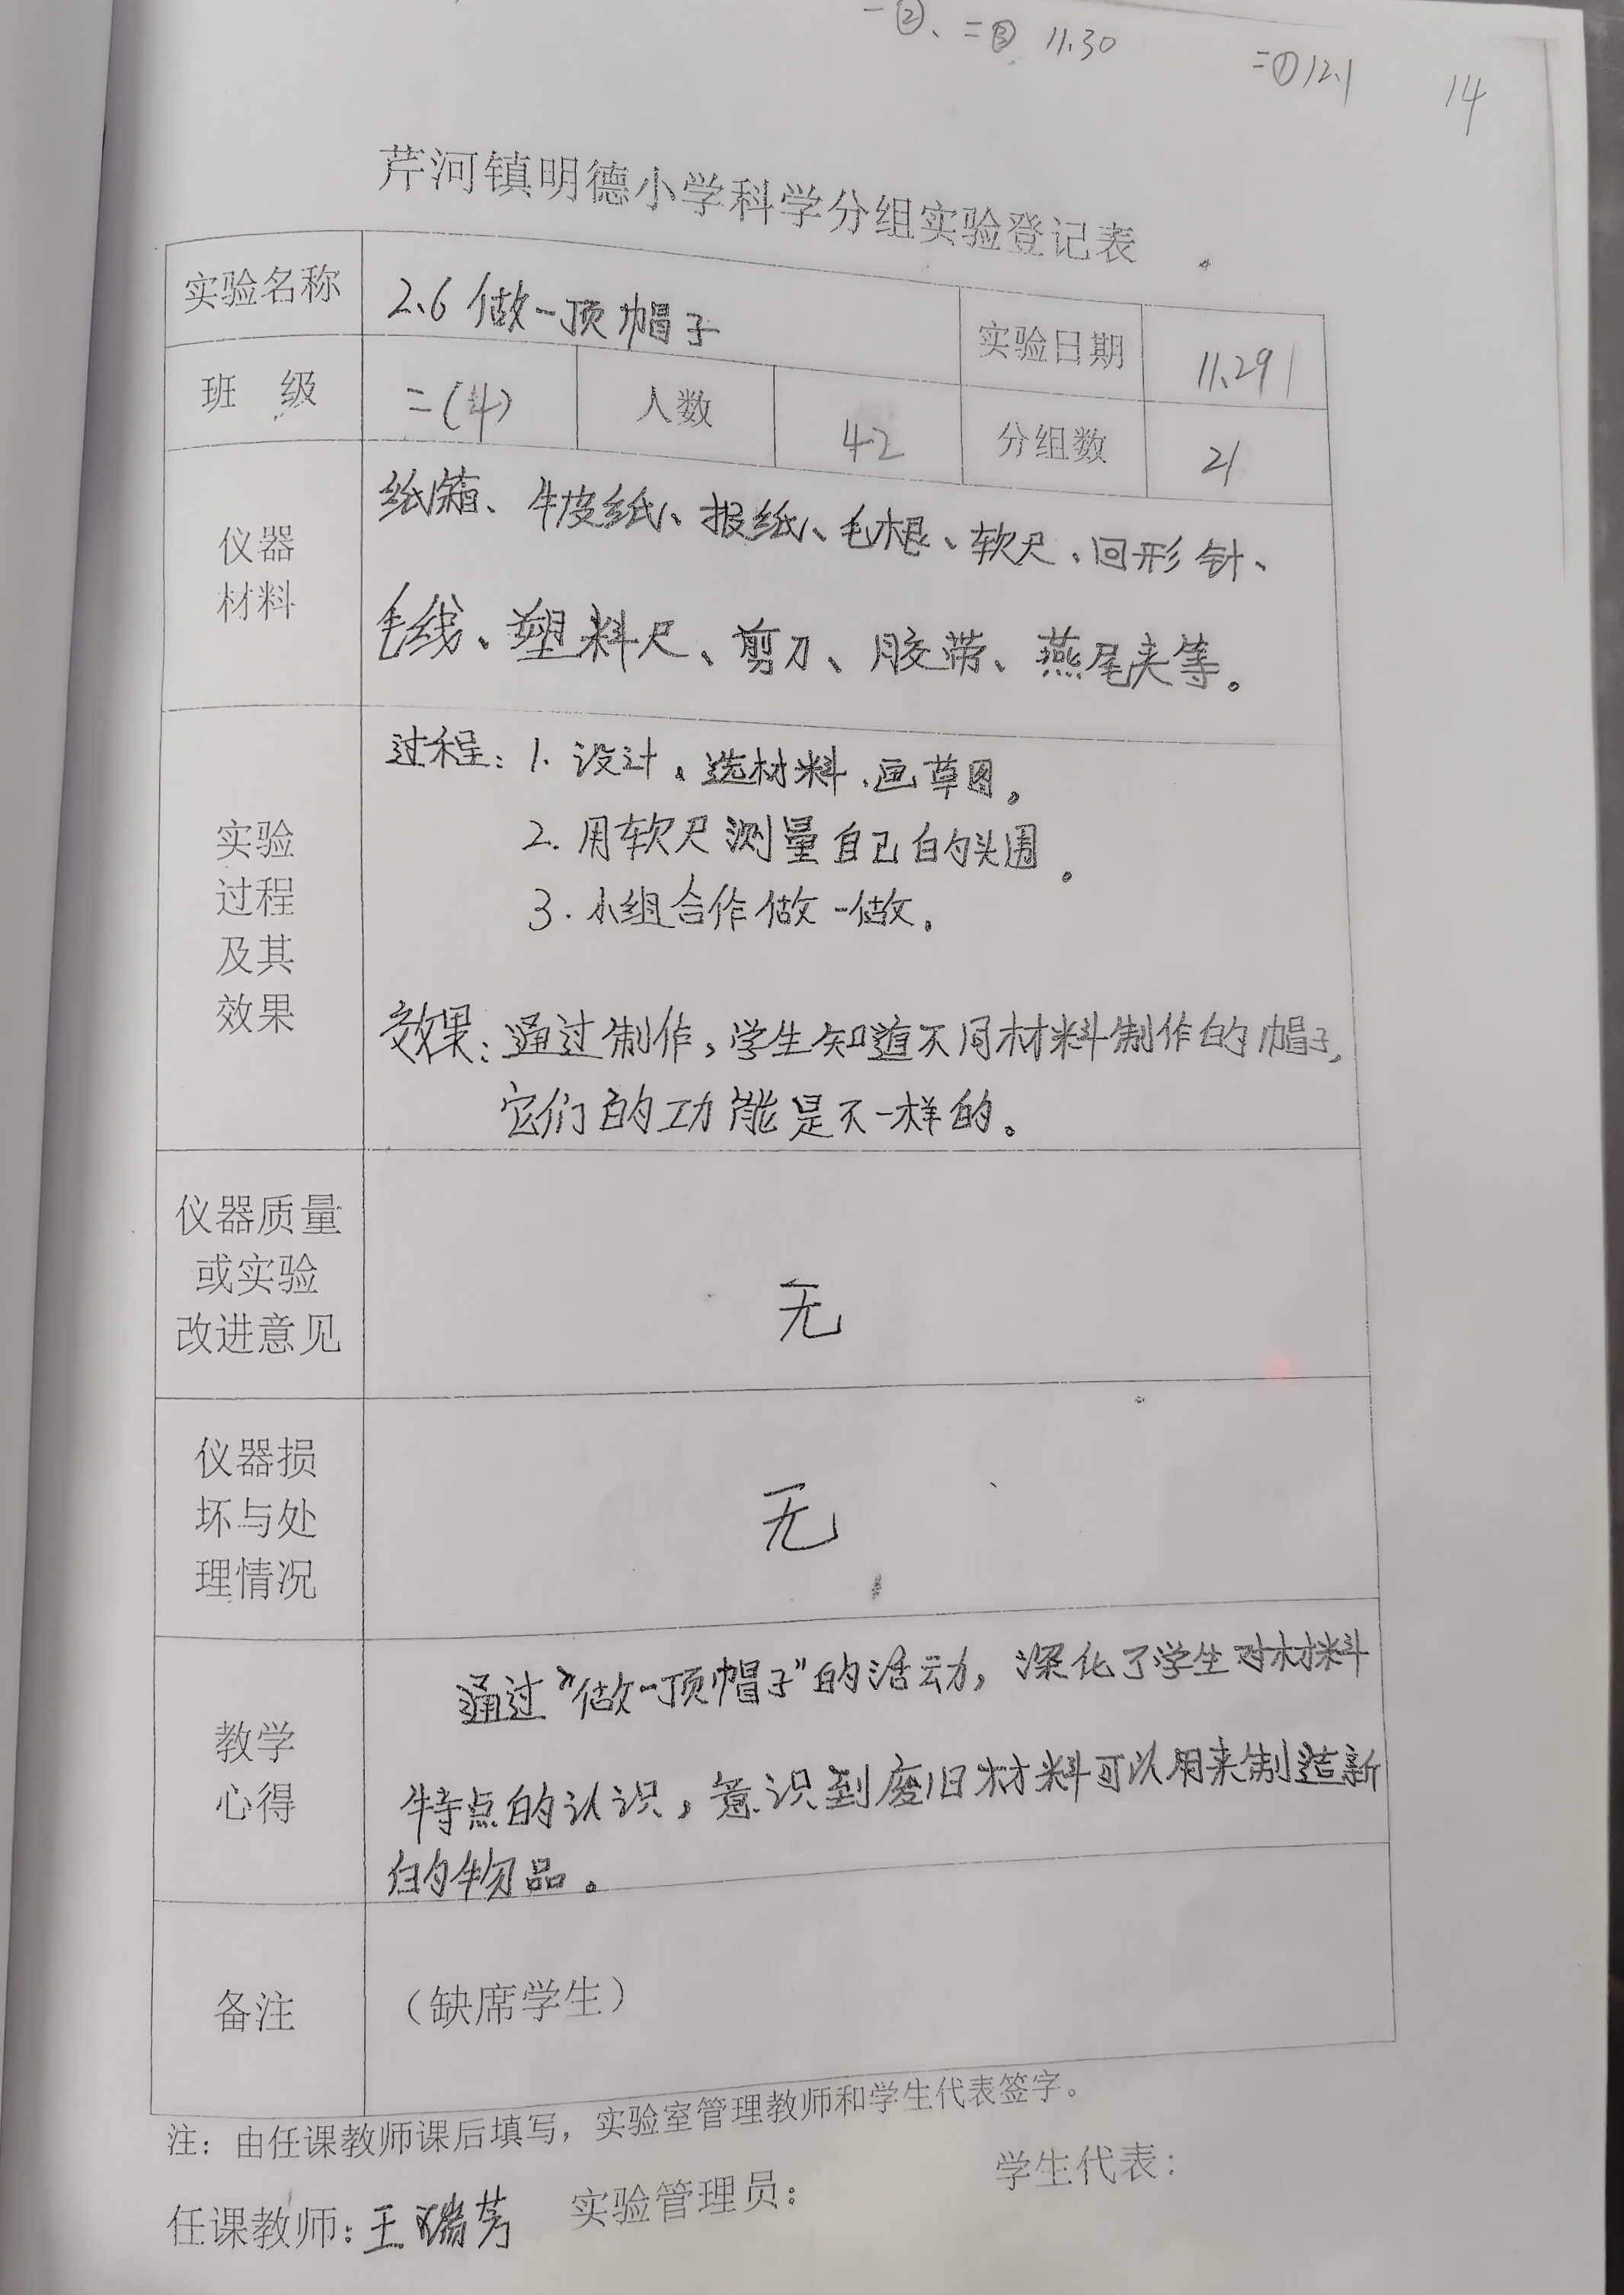 一②、二③ 11.30
二①12.1
14
芹河镇明德小学科学分组实验登记表
实验名称 2.6 做一顶帽子 实验日期 11.29
班 级 二(4) 人数 42 分组数 21
仪器
材料
纸箱、牛皮纸、报纸、毛根、软尺、回形针、
毛线、塑料尺、剪刀、胶带、燕尾夹等。
实验
过程
及其
效果
过程：1. 设计、选材料、画草图。
2. 用软尺测量自己的头围。
3. 小组合作做一做。
效果：通过制作，学生知道不同材料制作的帽子，
它们的功能是不一样的。
仪器质量
或实验
改进意见
无
仪器损
坏与处
理情况
无
教学
心得
通过“做一顶帽子”的活动，深化了学生对材料
特点的认识，意识到废旧材料可以用来制造新
的物品。
备注 （缺席学生）
注：由任课教师课后填写，实验室管理教师和学生代表签字。
任课教师：王瑞芳 实验管理员： 学生代表：